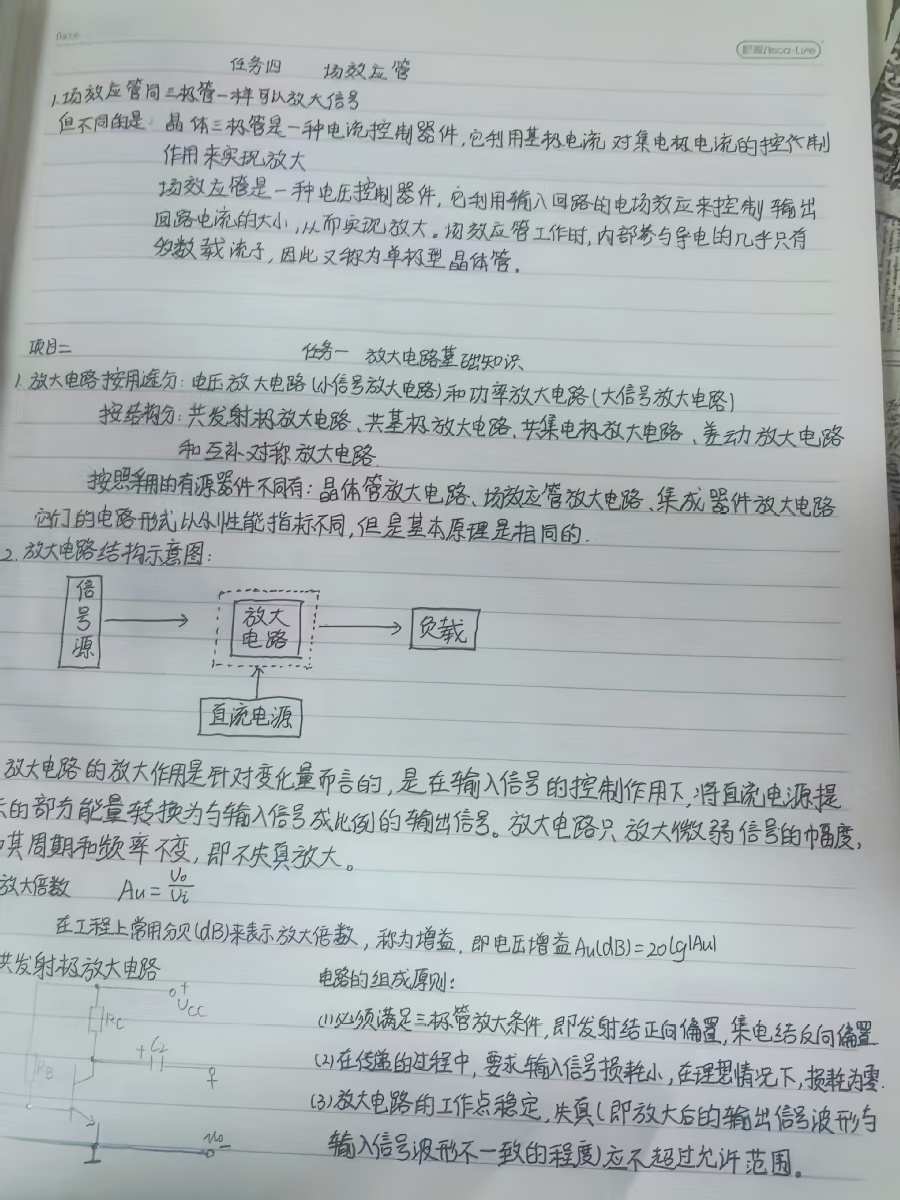 Date.
任务四 场效应管
1.场效应管同三极管一样可以放大信号
但不同的是: 晶体三极管是一种电流控制器件,它利用基极电流对集电极电流的控制
作用来实现放大
场效应管是一种电压控制器件,它利用输入回路的电场效应来控制输出
回路电流的大小,从而实现放大。场效应管工作时,内部参与导电的几乎只有
多数载流子,因此又称为单极型晶体管。
项目二 任务一 放大电路基础知识
1.放大电路按用途分:电压放大电路(小信号放大电路)和功率放大电路(大信号放大电路)
按结构分:共发射极放大电路、共基极放大电路、共集电极放大电路、差动放大电路
和互补对称放大电路.
按照采用的有源器件不同有:晶体管放大电路、场效应管放大电路、集成器件放大电路
它们的电路形式以及性能指标不同,但是基本原理是相同的.
2.放大电路结构示意图:
信号源
放大
电路
负载
直流电源
放大电路的放大作用是针对变化量而言的,是在输入信号的控制作用下,将直流电源提
的部分能量转换为与输入信号成比例的输出信号。放大电路只放大微弱信号的幅度,
其周期和频率不变,即不失真放大。
放大倍数 Au=Uo/Ui
在工程上常用分贝(dB)来表示放大倍数,称为增益.即电压增益Au(dB)=20lg|Au|
共发射极放大电路 电路的组成原则:
+
UCC
RC
(1)必须满足三极管放大条件,即发射结正向偏置,集电结反向偏置
+ C2
RB
(2)在传递的过程中,要求输入信号损耗小,在理想情况下,损耗为零.
(3)放大电路的工作点稳定,失真(即放大后的输出信号波形与
uo
输入信号波形不一致的程度)应不超过允许范围。